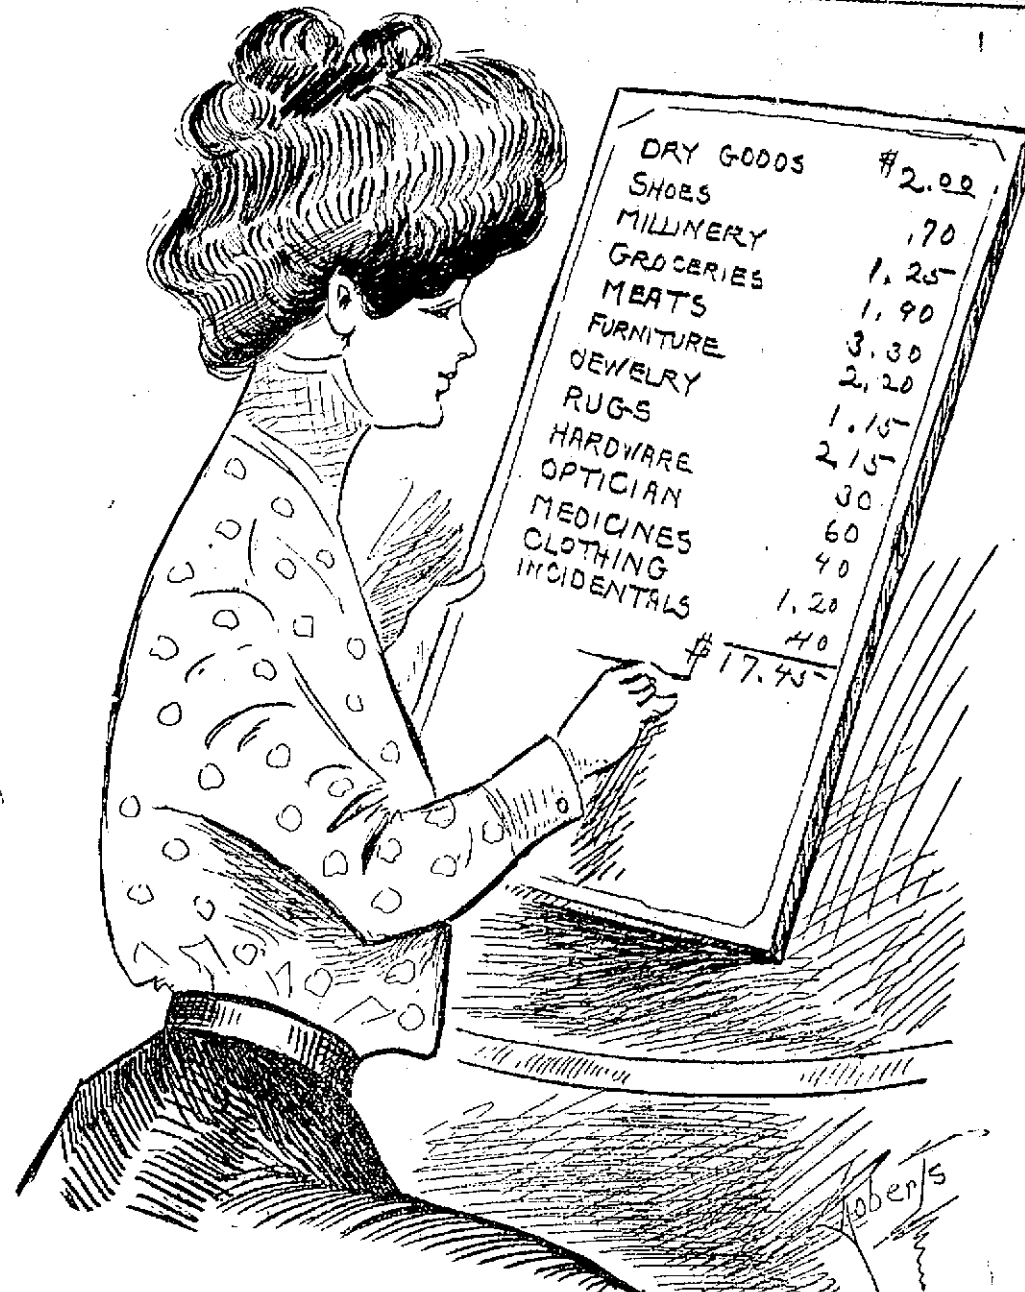 DRY GOODS $2.00
SHOES .70
MILLINERY 1.25
GROCERIES 1.90
MEATS 3.30
FURNITURE 2.20
JEWELRY 1.15
RUGS 2 15
HARDWARE 30
OPTICIAN 60
MEDICINES 40
CLOTHING 1.20
INCIDENTALS 40
$17.45
Roberts